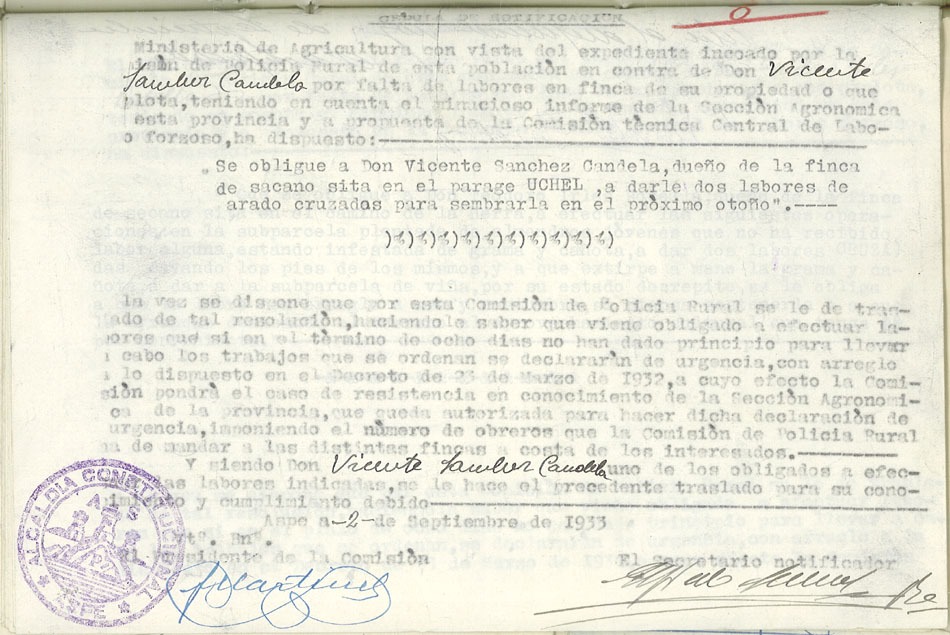 CEDULA DE NOTIFICACION
Ministerio de Agricultura con vista del expediente incoado por la
isòn de Policia Rural de esta población en contra de Don Vicente
Sanchez Candela por falta de labores en finca de su propiedad o que
plota, teniendo en cuenta el minucioso informe de la Secciòn Agronomica
esta provincia y a propuesta de la Comisiòn tècnica Central de Labo-
o forzoso, ha dispuesto:
"Se obligue a Don Vicente Sanchez Candela, dueño de la finca
de sacano sita en el parage UCHEL , a darle dos lsbores de
arado cruzadas para sembrarla en el pròximo otoño".----
)%)%)%)%)%)%)%)%)%)%)
la vez se dispone que por esta Comisiòn de Policia Rural se le de tras-
ado de tal resoluciòn, haciendole saber que viene obligado a efectuar la-
ores que si en el tèrmino de ocho dias no han dado principio para llevar
a cabo los trabajos que se ordenan se declararàn de urgencia, con arreglo
a lo dispuesto en el Decreto de 23 de Marzo de 1932, a cuyo efecto la Comi-
siòn pondrà el caso de resistencia en conocimiento de la Secciòn Agronomi-
ca de la provincia, que queda autorizada para hacer dicha declaraciòn de
urgencia, imponiendo el nùmero de obreros que la Comisiòn de Policia Rural
ha de mandar a las distintas fincas a costa de los interesados.
Y siendo Don Vicente Sanchez Candela uno de los obligados a efec-
as labores indicadas, se le hace el precedente traslado para su cono-
imiento y cumplimiento debido
Aspe a-2-de Septiembre de 1933
Vtº. Bnº.
El Presidente de la Comisiòn El Secretario notificador
ALCALDIA CONSTITUCIONAL
ASPE